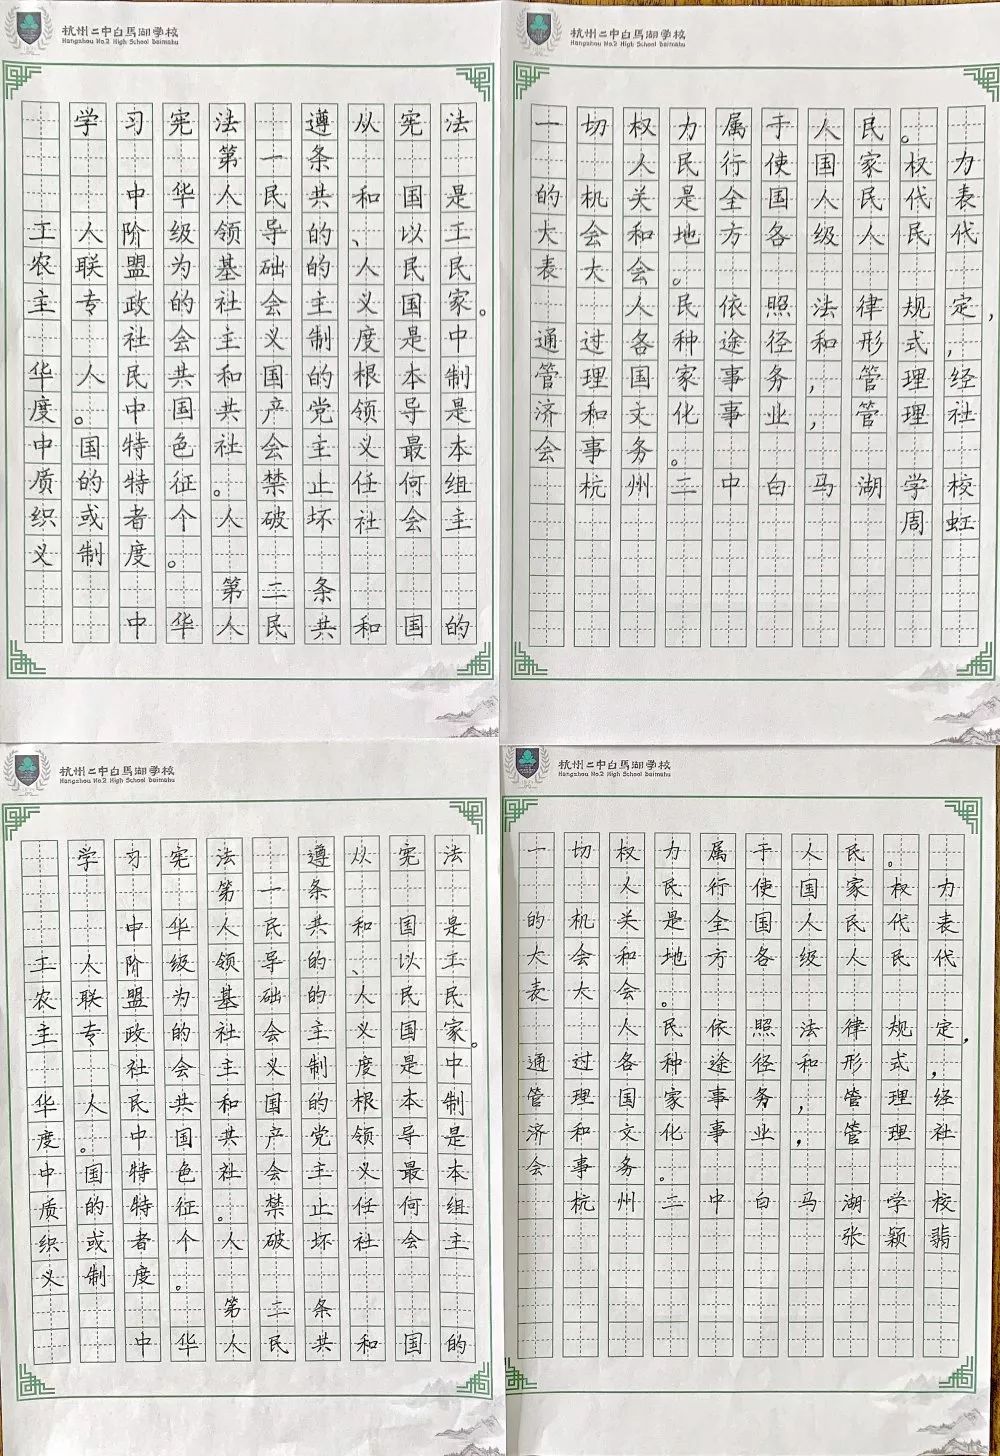 杭州二中白马湖学校
Hangzhou No.2 High School Baimahu
学习宪法 遵从宪法
第一条
中华人民共和国是
工人阶级领导的、以工
农联盟为基础的人民民
主专政的社会主义国家。
社会主义制度是中
华人民共和国的根本制
度。中国共产党领导是
中国特色社会主义最本
质的特征。禁止任何组
织或者个人破坏社会主
义制度。
第二条
中华人民共和国的
杭州二中白马湖学校
Hangzhou No.2 High School Baimahu
一切权力属于人民。
人民行使国家权力
的机关是全国人民代表
大会和地方各级人民代
表大会。
人民依照法律规定，
通过各种途径和形式，
管理国家事务，管理经
济和文化事业，管理社
会事务。
杭州二中白马湖学校
周虹
杭州二中白马湖学校
Hangzhou No.2 High School Baimahu
学习宪法 遵从宪法
第一条
中华人民共和国是
工人阶级领导的、以工
农联盟为基础的人民民
主专政的社会主义国家。
社会主义制度是中
华人民共和国的根本制
度。中国共产党领导是
中国特色社会主义最本
质的特征。禁止任何组
织或者个人破坏社会主
义制度。
第二条
中华人民共和国的
杭州二中白马湖学校
Hangzhou No.2 High School Baimahu
一切权力属于人民。
人民行使国家权力
的机关是全国人民代表
大会和地方各级人民代
表大会。
人民依照法律规定，
通过各种途径和形式，
管理国家事务，管理经
济和文化事业，管理社
会事务。
杭州二中白马湖学校
张颖翡